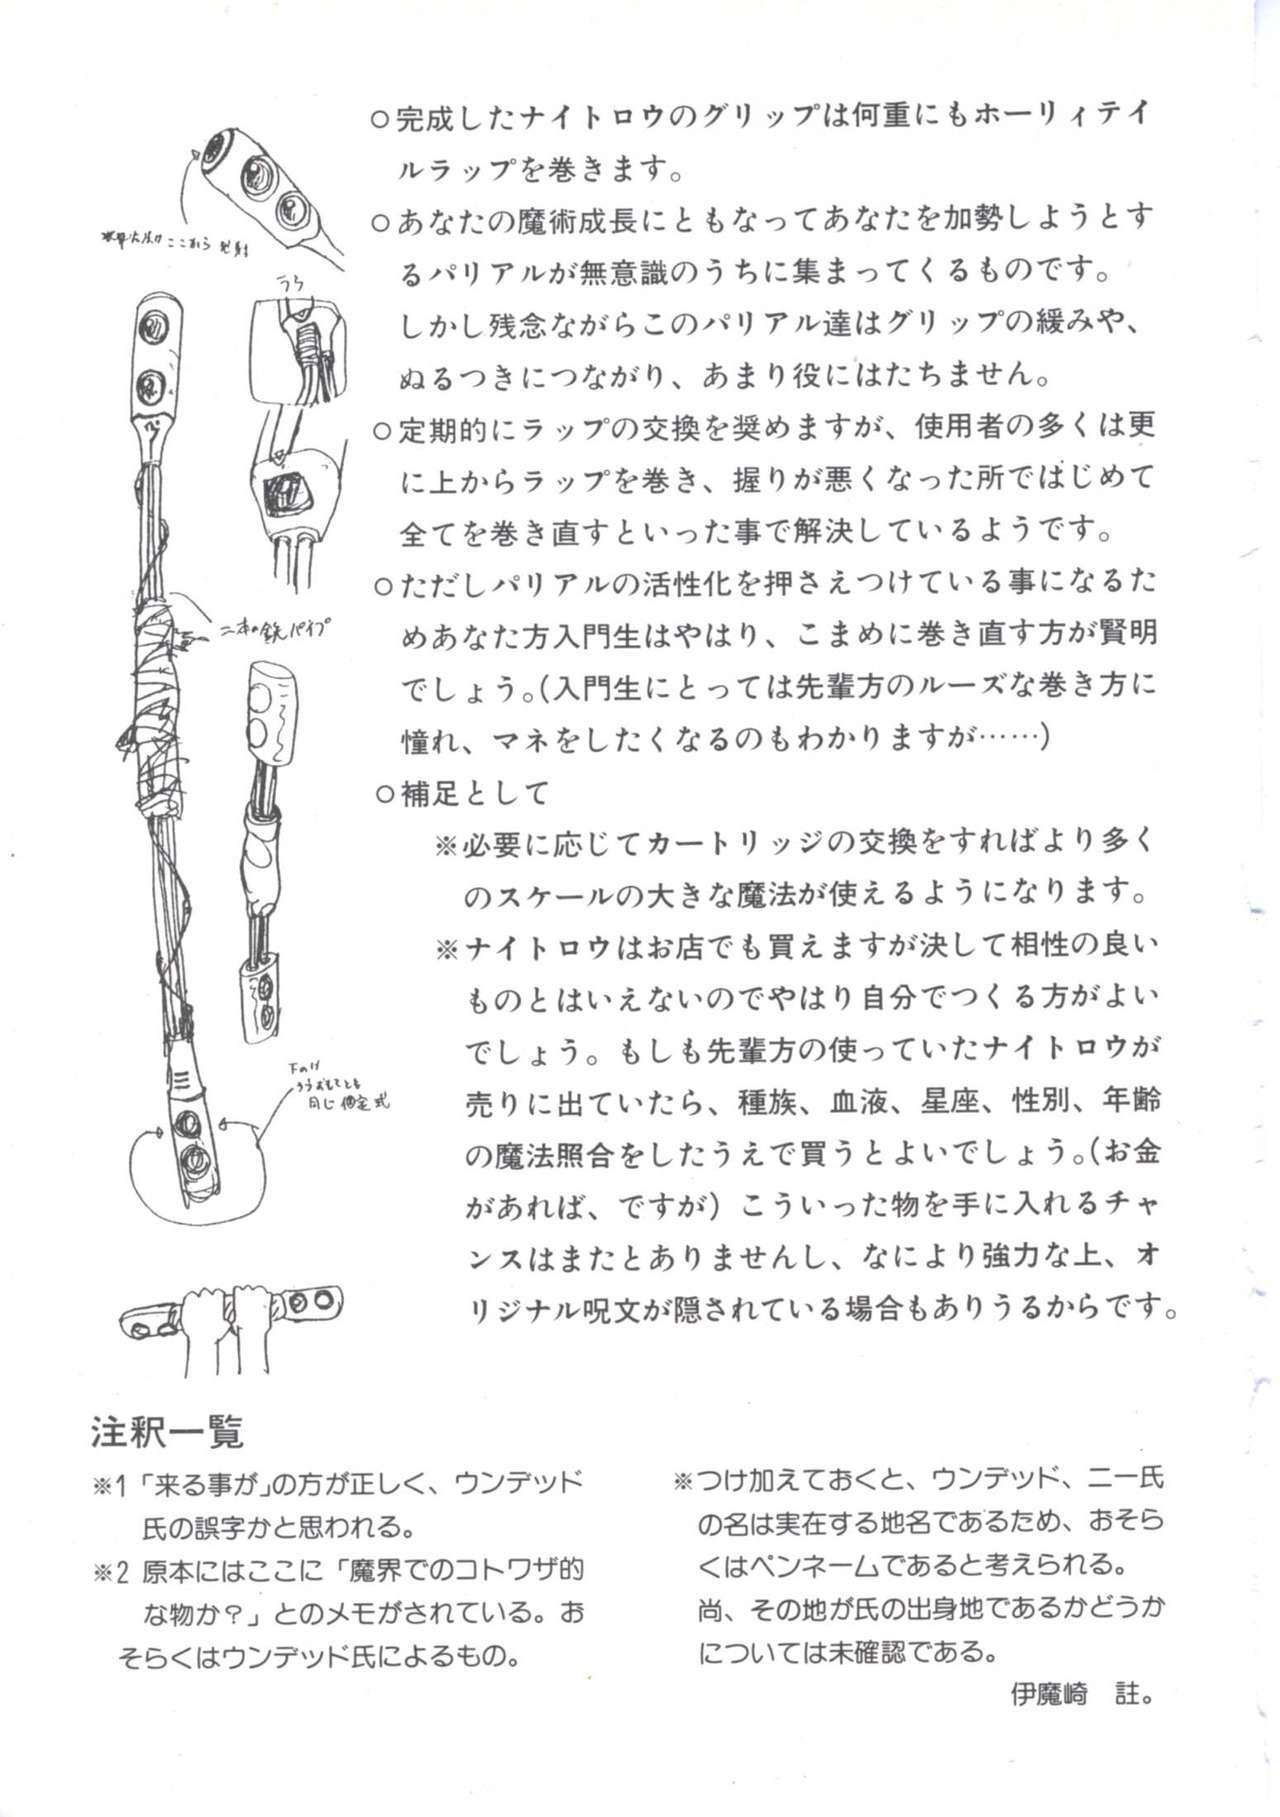 ○完成したナイトロウのグリップは何重にもホーリィテイ
ルラップを巻きます。
○あなたの魔術成長にともなってあなたを加勢しようとす
るパリアルが無意識のうちに集まってくるものです。
しかし残念ながらこのパリアル達はグリップの緩みや、
ぬるつきにつながり、あまり役にはたちません。
○定期的にラップの交換を奨めますが、使用者の多くは更
に上からラップを巻き、握りが悪くなった所ではじめて
全てを巻き直すといった事で解決しているようです。
○ただしパリアルの活性化を押さえつけている事になるた
めあなた方入門生はやはり、こまめに巻き直す方が賢明
でしょう。(入門生にとっては先輩方のルーズな巻き方に
憧れ、マネをしたくなるのもわかりますが……)
○補足として
※必要に応じてカートリッジの交換をすればより多く
のスケールの大きな魔法が使えるようになります。
※ナイトロウはお店でも買えますが決して相性の良い
ものとはいえないのでやはり自分でつくる方がよい
でしょう。もしも先輩方の使っていたナイトロウが
売りに出ていたら、種族、血液、星座、性別、年齢
の魔法照合をしたうえで買うとよいでしょう。(お金
があれば、ですが) こういった物を手に入れるチャ
ンスはまたとありませんし、なにより強力な上、オ
リジナル呪文が隠されている場合もありうるからです。
ここから発射
うら
二本の鉄パイプ
下のは
うらおもてとも
同じ固定式
注釈一覧
※1「来る事が」の方が正しく、ウンデッド
氏の誤字かと思われる。
※2 原本にはここに「魔界でのコトワザ的
な物か?」とのメモがされている。お
そらくはウンデッド氏によるもの。
※つけ加えておくと、ウンデッド、ニー氏
の名は実在する地名であるため、おそら
くはペンネームであると考えられる。
尚、その地が氏の出身地であるかどうか
については未確認である。
伊魔崎 註。